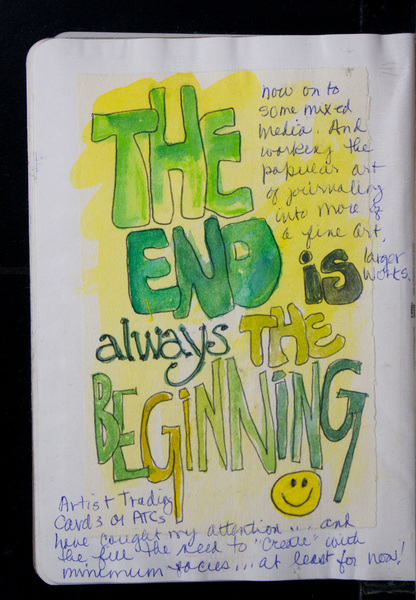 THE
END is
always THE
BEGINNING
now on to
some mixed
media. And
working the
popular art
of journaling
into more of
a fine art,
larger
works.
Artist Trading
Cards or ATCs
have caught my attention .... and
the fill the need to "create" with
minimum ... at least for now!